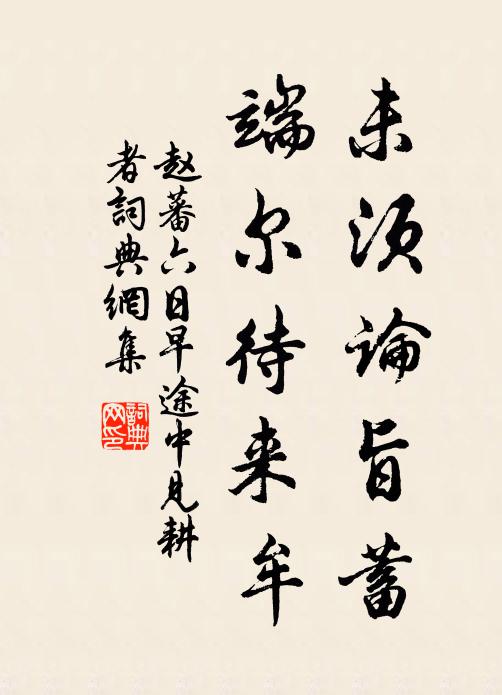 未须論旨蓄
端尔待来牟
赵蕃六日早途中見耕
者詞典網集
詞典
网印